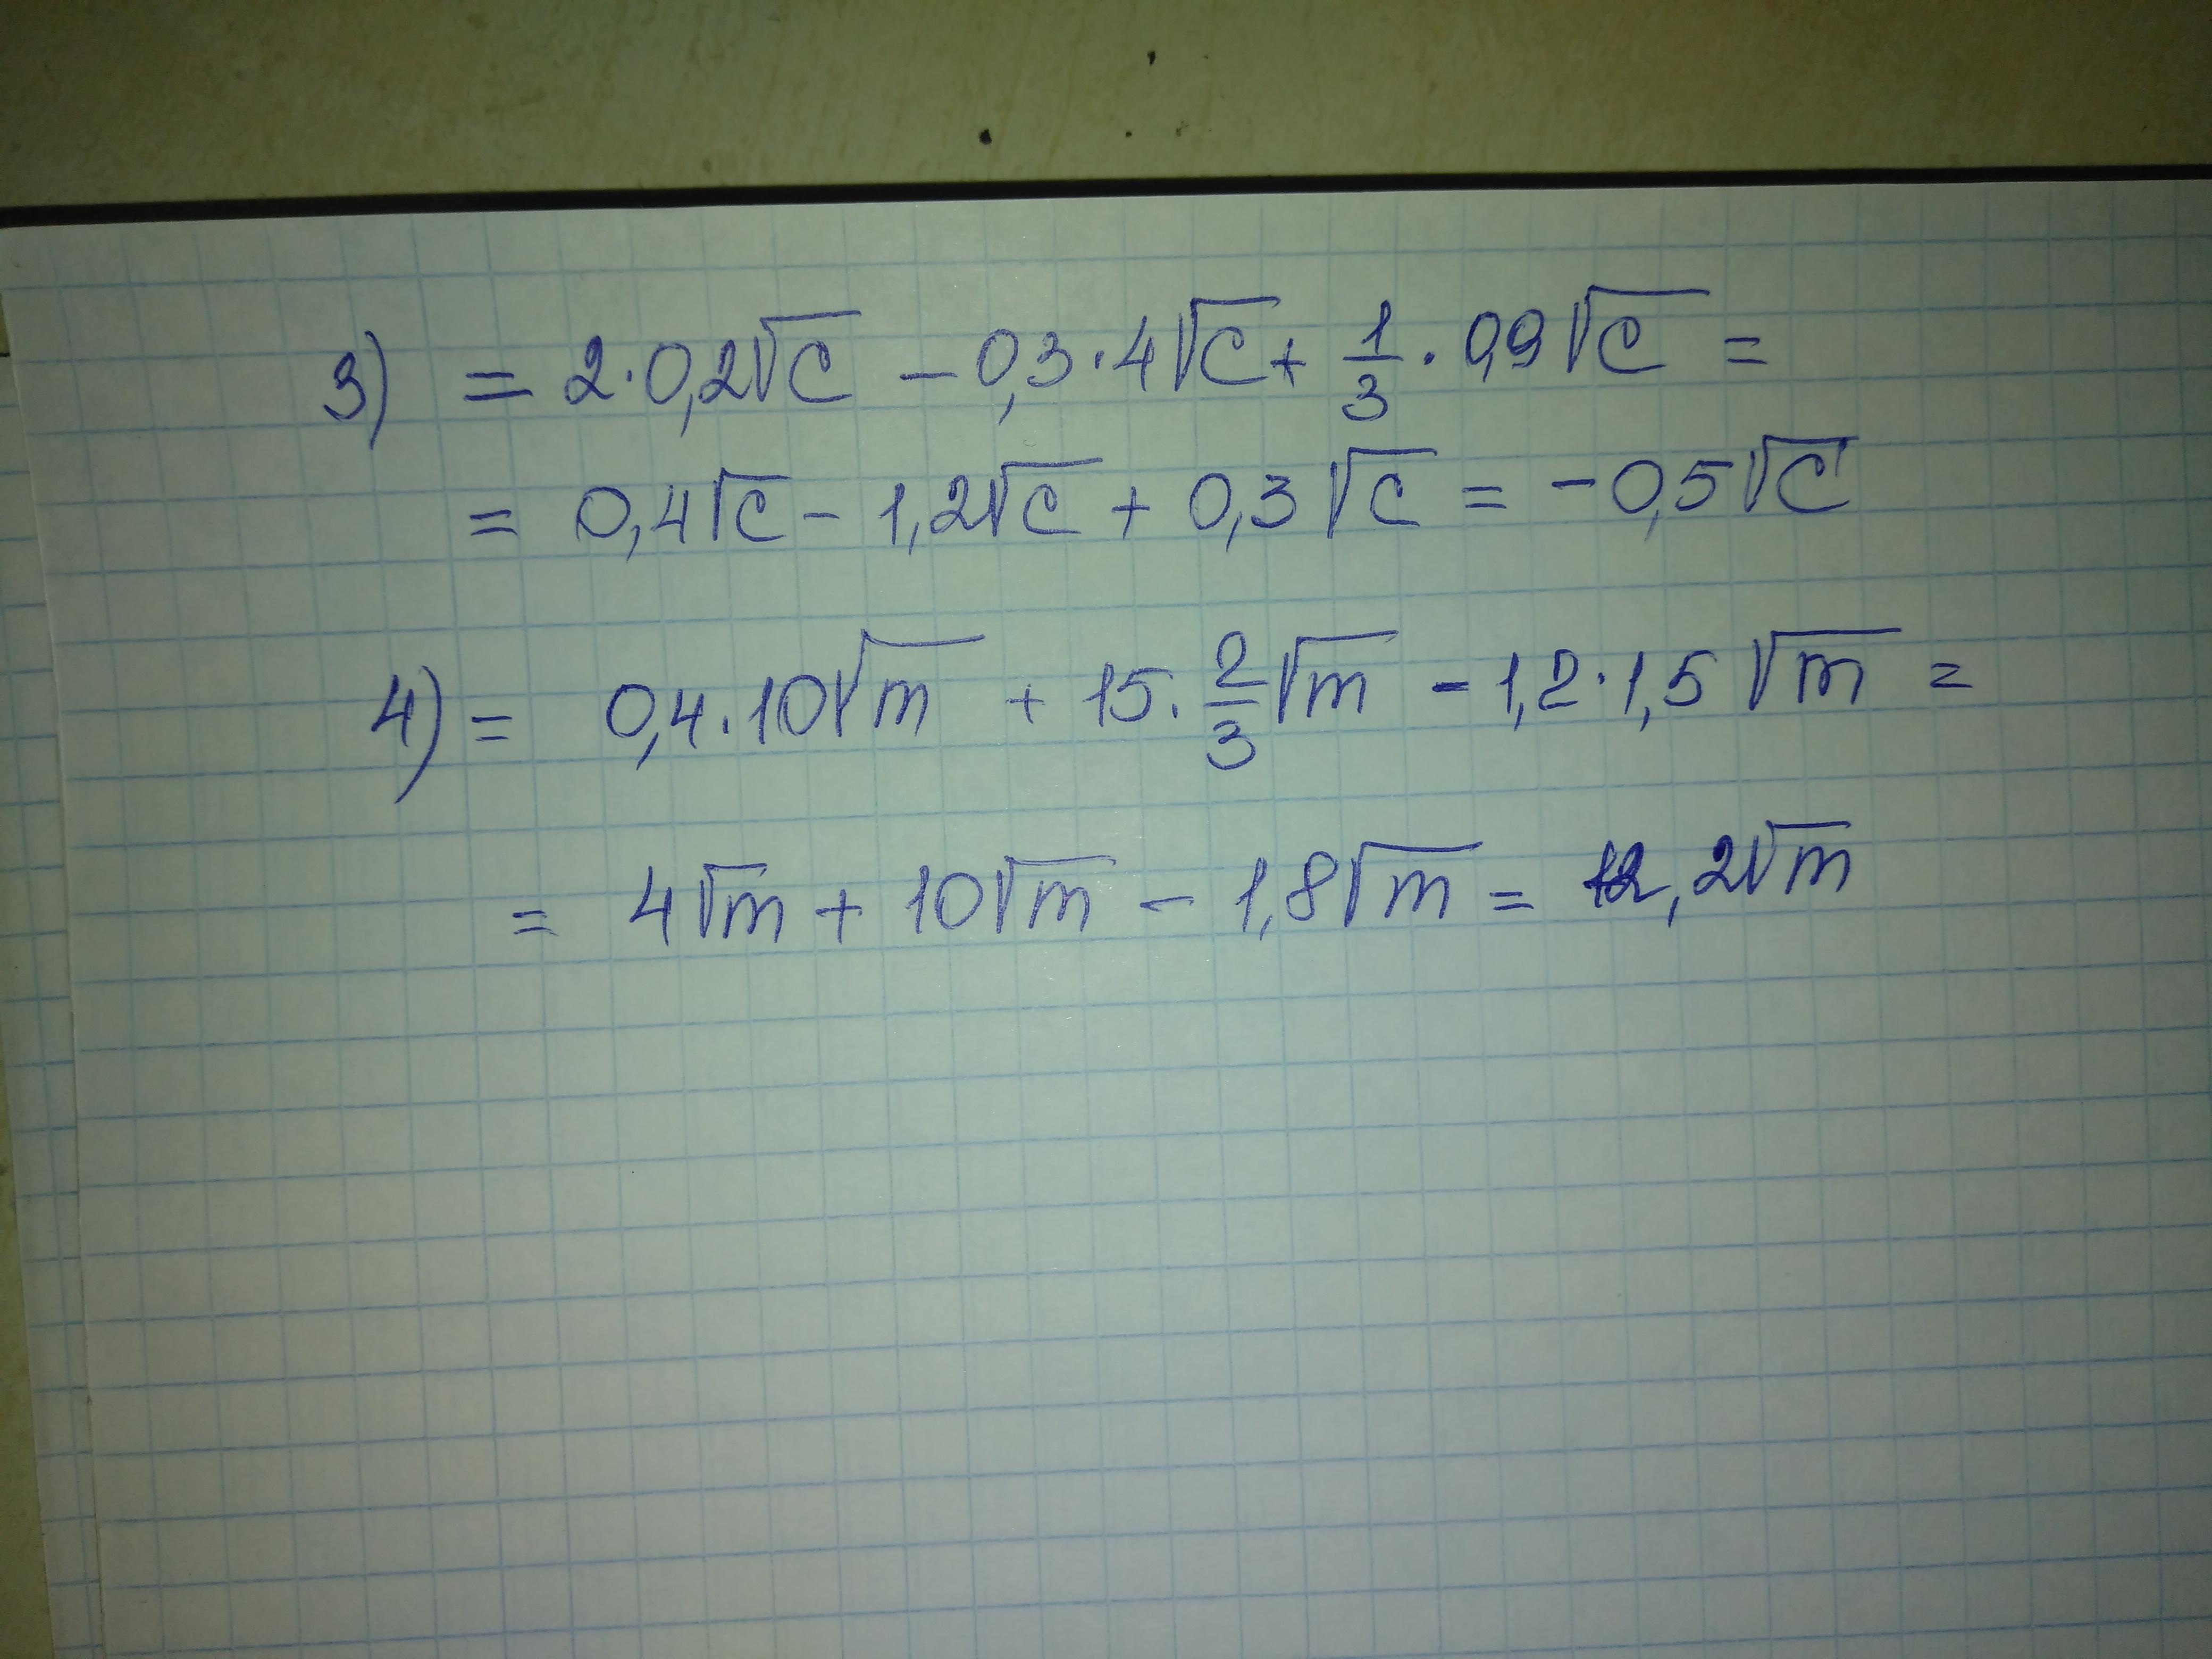 3) = 2·0,2√c − 0,3·4√c + 1/3 · 0,9√c =
= 0,4√c − 1,2√c + 0,3√c = −0,5√c
4) = 0,4·10√m + 15·2/3√m − 1,2·1,5√m =
= 4√m + 10√m − 1,8√m = 12,2√m